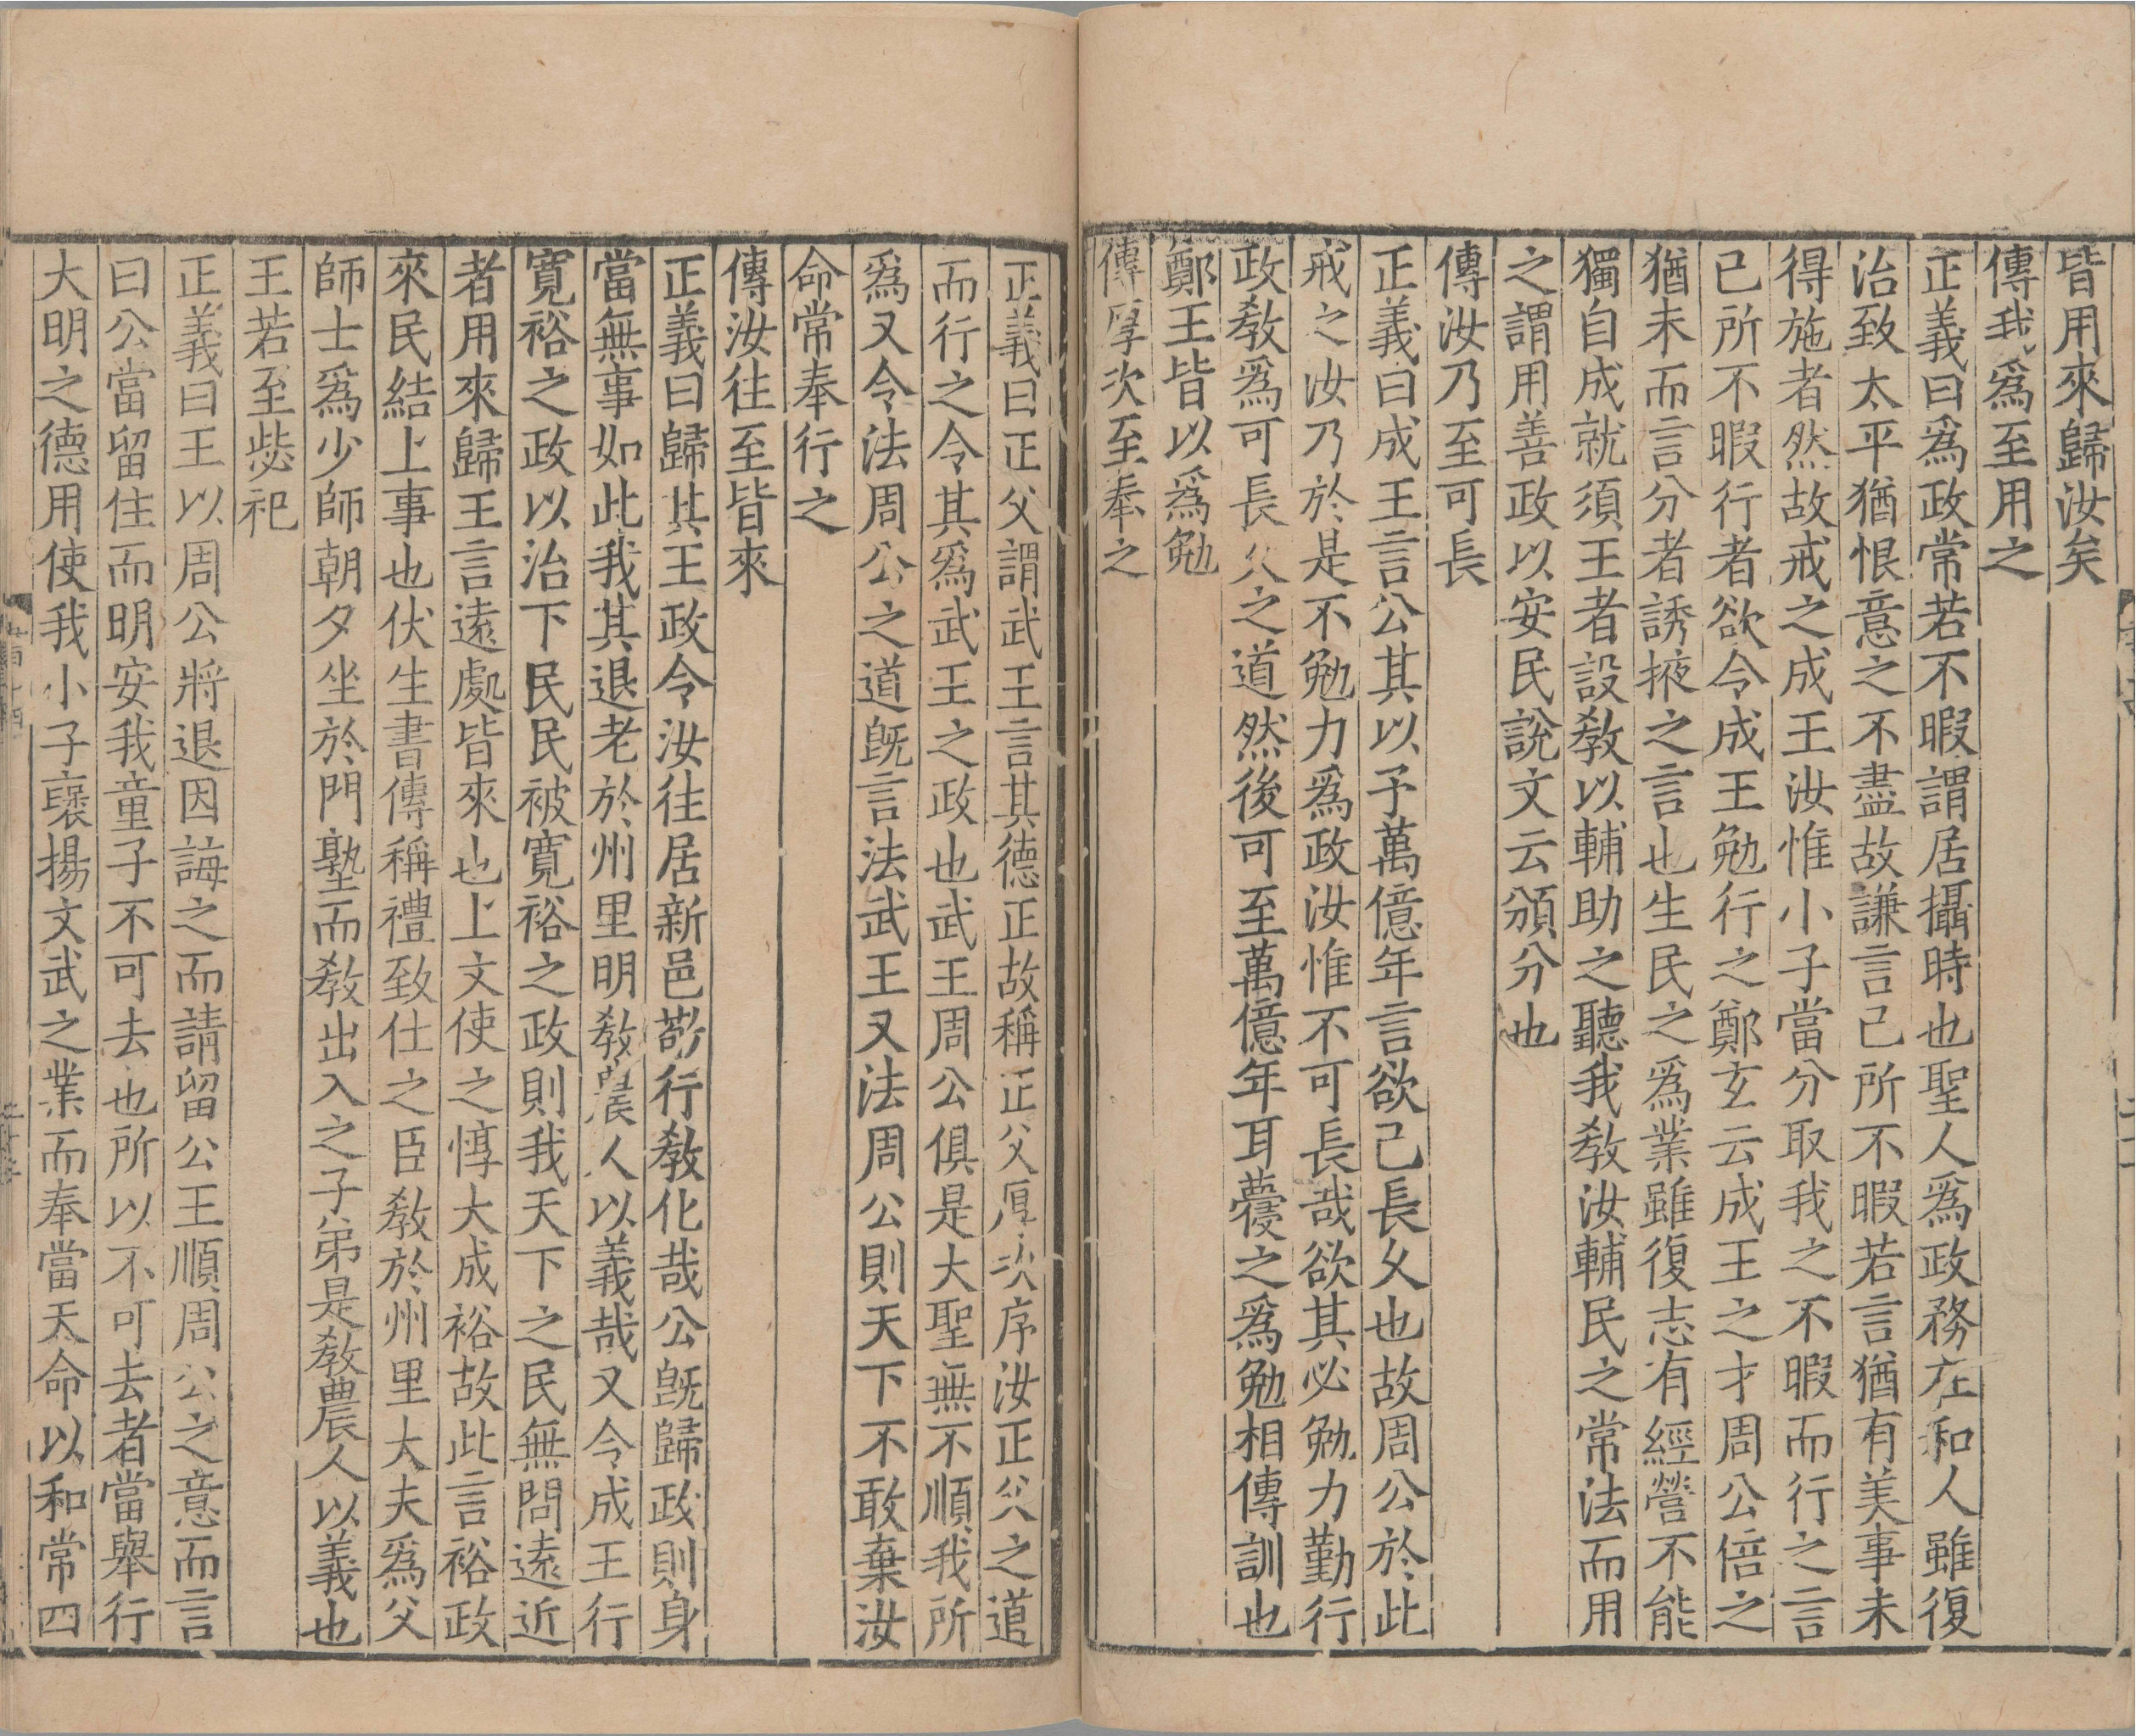 皆用來歸汝矣
傳我爲至用之
正義曰爲政常若不暇謂居攝時也聖人爲政務在和人雖復
治致太平猶恨意之不盡故謙言己所不暇若言猶有美事未
得施者然故戒之成王汝惟小子當分取我之不暇而行之言
已所不暇行者欲令成王勉行之鄭玄云成王之才周公倍之
猶未而言分者誘掖之言也生民之爲業雖復志有經營不能
獨自成就須王者設教以輔助之聽我教汝輔民之常法而用
之謂用善政以安民說文云頒分也
傳汝乃至可長
正義曰成王言公其以予萬億年言欲己長久也故周公於此
戒之汝乃於是不勉力爲政汝惟不可長哉欲其必勉力勤行
政教爲可長久之道然後可至萬億年耳蘉之爲勉相傳訓也
鄭王皆以爲勉
傳厚次至奉之
正義曰正父謂武王言其德正故稱正父厚次序汝正父之道
而行之令其爲武王之政也武王周公俱是大聖無不順我所
爲又令法周公之道旣言法武王又法周公則天下不敢棄汝
命常奉行之
傳汝往至皆來
正義曰歸其王政令汝往居新邑勑行教化哉公旣歸政則身
當無事如此我其退老於州里明教農人以義哉又令成王行
寬裕之政以治下民民被寬裕之政則我天下之民無問遠近
者用來歸王言遠處皆來也上文使之惇大成裕故此言裕政
來民結上事也伏生書傳稱禮致仕之臣教於州里大夫爲父
師士爲少師朝夕坐於門塾而教出入之子弟是教農人以義也
王若至毖祀
正義曰王以周公將退因誨之而請留公王順周公之意而言
曰公當留住而明安我童子不可去也所以不可去者當舉行
大明之德用使我小子襃揚文武之業而奉當天命以和常四